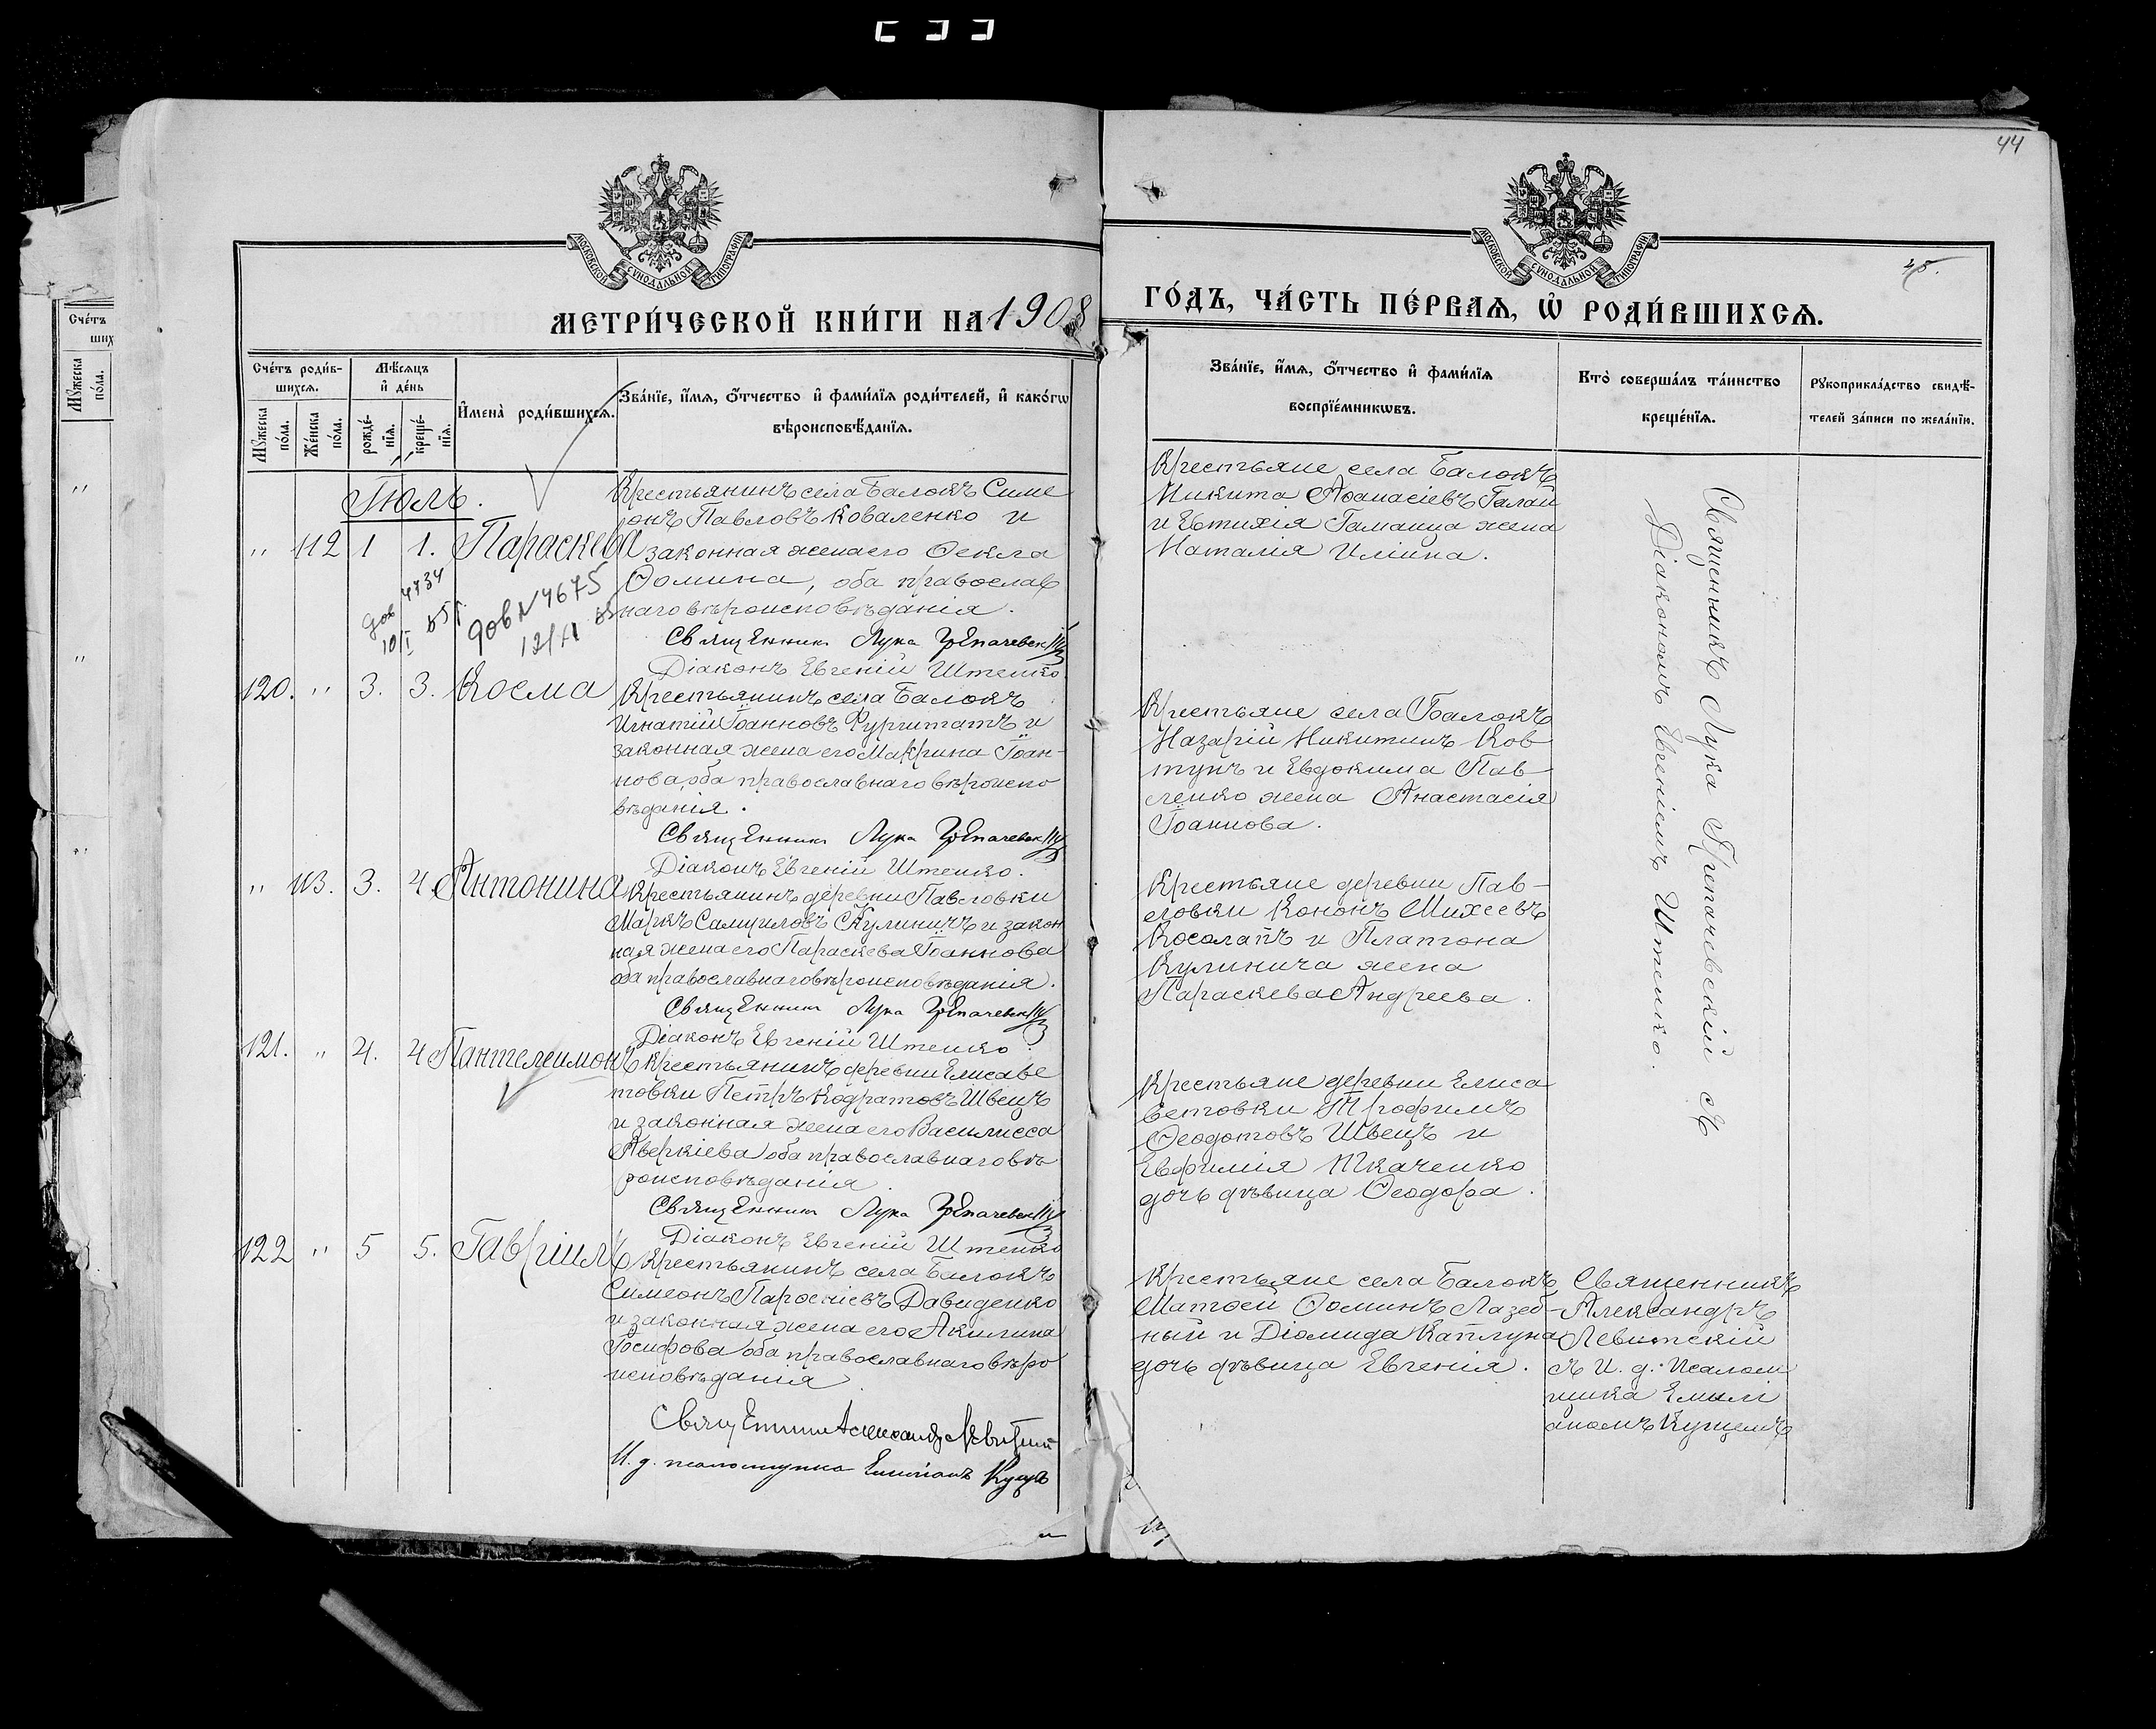 44
45.
МОСКОВСКОЙ СѴНОДАЛЬНОЙ ТИПОГРАФІИ
МОСКОВСКОЙ СѴНОДАЛЬНОЙ ТИПОГРАФІИ
МЕТРИ́ЧЕСКОЙ КНИ́ГИ НА 1908 ГО́ДЪ, ЧА́СТЬ ПЕ́РВАѦ, Ѡ҆ РОДИ́ВШИХСѦ.
Сче́тъ роди́в-
шихсѧ.
Мꙋжеска
по́ла.
Же́нска
по́ла.
Мѣ́сѧцъ
и҆ де́нь
рожде́-
нїѧ.
креще́-
нїѧ.
И҆мена̀ роди́вшихсѧ.
Зва́нїе, и҆́мѧ, ѻ҆́тчество и҆ фами́лїѧ роди́телей, и҆ како́гѡ
вѣроисповѣ́данїѧ.
Зва́нїе, и҆́мѧ, ѻ҆́тчество и҆ фами́лїѧ
воспрїе́мникѡвъ.
Кто̀ соверша́лъ та́инство
креще́нїѧ.
Рꙋкоприкла́дство свидѣ́-
телей за́писи по жела́нїю.
Сче́тъ
ших
Мꙋжеска
по́ла.
Іюль.
" 112 1 1. Параскева
Крестьянинъ села Балокъ Симе
онъ Павловъ Коваленко и
законная жена его Ѳекла
Ѳомина, оба православ
наго вѣроисповѣданія.
Священникъ Лука Грепачевскій
Діаконъ Евгеній Штепко
дов 4734
10/I 55 г.
дов N 4675
12/XI
Крестьяне села Балокъ
Никита Аѳанасіевъ Галай
и Евтихія Гаманца жена
Наталія Иліина.
120. " 3. 3. Косма
Крестьянинъ села Балокъ
Игнатій Іоанновъ Фургитатъ и
законная жена его Макрина Іоан-
нова, оба православнаго вѣроиспо
вѣданія.
Священникъ Лука Грепачевскій
Діаконъ Евгеній Штепко.
Крестьяне села Балокъ
Назарій Никитинъ Ков
тунъ и Евдокима Пав-
ленко жена Анастасія
Іоаннова.
" 113. 3. 4. Антонина
Крестьянинъ деревни Павловки
Маркъ Самуиловъ Кулиничъ и закон
ная жена его Параскева Іоаннова
оба православнаго вѣроисповѣданія.
Священникъ Лука Грепачевскій
Діаконъ Евгеній Штепко.
Крестьяне деревни Пав-
ловки Кононъ Михеевъ
Косолапъ и Платона
Кулинича жена
Параскева Андреева.
121. " 4. 4 Пантелеимонъ
Крестьянинъ деревни Елисаве
товки Петръ Кодратовъ Швецъ
и законная жена его Василисса
Аверкіева оба православнаго вѣ
роисповѣданія.
Священникъ Лука Грепачевскій
Діаконъ Евгеній Штепко
Крестьяне деревни Елиса
ветовки Трофимъ
Ѳеодотовъ Швецъ и
Евфимія Ткаченко
дочь дѣвица Ѳеодора.
Священникъ Лука Грепачевскій съ
Діакономъ Евгеніемъ Штепко.
122 " 5 5. Гавріилъ
Крестьянинъ села Балокъ
Симеонъ Парѳеніевъ Давиденко
и законная жена его Акилина
Іосифова оба православнаго вѣро
исповѣданія
Священникъ Александръ Левитскій
И. д. псаломщика Емиліанъ Куцъ
Крестьяне села Балокъ
Матѳей Ѳоминъ Лазеб-
ный и Діомида Каплуна
дочь дѣвица Евгенія.
Священникъ
Александръ
Левитскій
съ И. д. Псалом
щика Емилі
аномъ Куцемъ